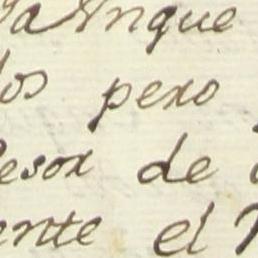 Yanque
los pexo
esox de
ente el